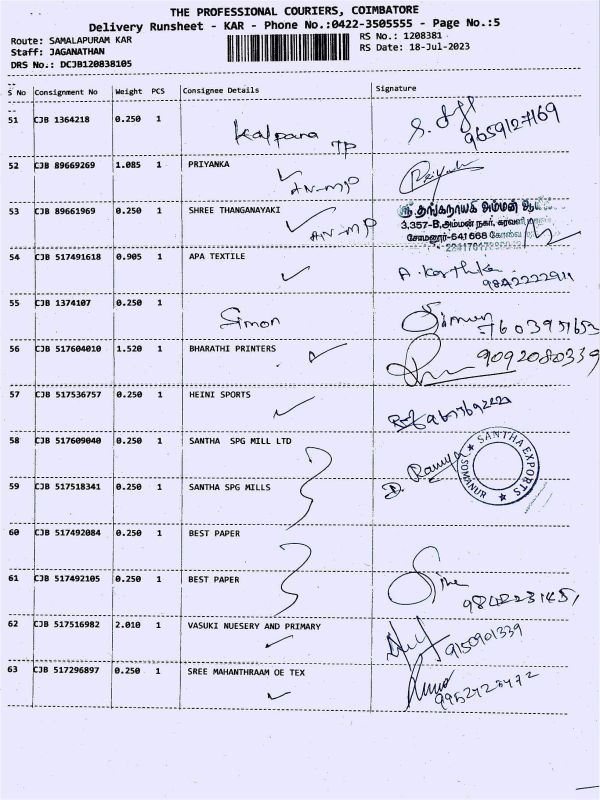 THE PROFESSIONAL COURIERS, COIMBATORE
Delivery Runsheet - KAR - Phone No.:0422-3505555 - Page No.:5
Route: SAMALAPURAM KAR
RS No.: 1208381
Staff: JAGANATHAN
RS Date: 18-Jul-2023
DRS No.: DCJB120838105
S No Consignment No Weight PCS Consignee Details Signature
51 CJB 1364218 0.250 1 Kalpana TP 9659127169
52 CJB 89669269 1.085 1 PRIYANKA AN-MP Priyanka
53 CJB 89661969 0.250 1 SHREE THANGANAYAKI AN-MP
ஸ்ரீ தங்கநாயகி அம்மன்
3,357-B, அம்மன் நகர்,
சோமனூர்-641 668
54 CJB 517491618 0.905 1 APA TEXTILE A. Karthika 9842222911
55 CJB 1374107 0.250 1 Simon Simon 7603951653
56 CJB 517604010 1.520 1 BHARATHI PRINTERS 9092080339
57 CJB 517536757 0.250 1 HEINI SPORTS
58 CJB 517609040 0.250 1 SANTHA SPG MILL LTD D. Ramya
SANTHA EXPORTS SOMANUR
59 CJB 517518341 0.250 1 SANTHA SPG MILLS
60 CJB 517492084 0.250 1 BEST PAPER
61 CJB 517492105 0.250 1 BEST PAPER 9842231451
62 CJB 517516982 2.010 1 VASUKI NUESERY AND PRIMARY 9150901339
63 CJB 517296897 0.250 1 SREE MAHANTHRAAM OE TEX 9952723472